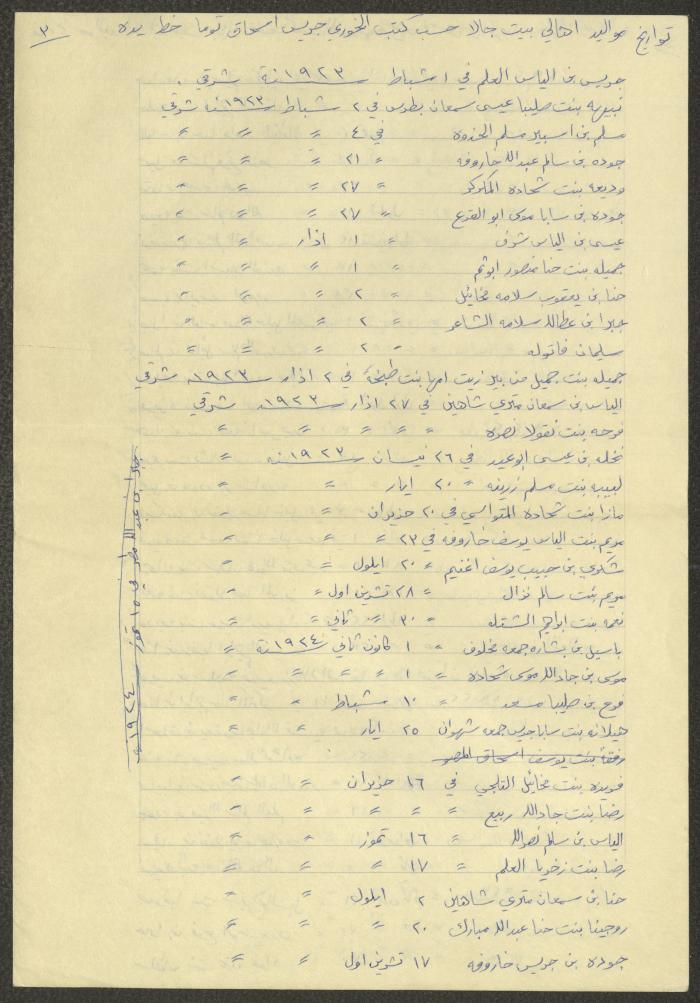 ٣
تواريخ مواليد اهالي بيت جالا حسب كتب الخوري جريس اسحاق توما خط يده
جريس بن الياس العلم في ١ شباط سنة ١٩٢٣ شرقي .
نبيهه بنت صليبا عيسى سمعان بطرس في ٢ شباط سنة ١٩٢٣ شرقي
مسلم بن اسبير مسلم في ٤〃 〃 〃
جوده بن سالم عبدالله خاروفه 〃 ٢١ 〃 〃 〃
وديعه بنت شحاده 〃 ٢٧ 〃 〃 〃
جوده بن سابا موسى ابو القرع 〃 ٢٧ 〃 〃 〃
عيسى بن الياس شرف 〃 ١ اذار 〃 〃
جميله بنت حنا منصور ابوثم 〃 ١ 〃 〃 〃
حنا بن يعقوب سلامه مخائيل 〃 ٢ 〃 〃 〃
جبرا بن عطالله سلامه الشاعر 〃 ٢ 〃 〃 〃
سليمان قاتوله 〃 ٢ 〃 〃 〃
جميله بنت جميل من بير زيت امها بنت طبخه في ٢ اذار ١٩٢٣ شرقي
الياس بن سمعان متري شاهين في ٢٧ اذار ١٩٢٣ شرقي
فرحه بنت نقولا نصره 〃 〃 〃 〃 〃
نخله بن عيسى ابوعيد في ٢٦ نيسان سنة ١٩٢٣ 〃
لبيبه بنت مسلم زرينه 〃 ٢٠ ايار 〃 〃
مازا بنت شحاده المتواسي في ٢٠ حزيران 〃 〃
مريم بنت الياس يوسف خاروفه في ٢٣ 〃 〃 〃
شكري بن حبيب يوسف اغنيم 〃 ٢٠ ايلول 〃 〃
مريم بنت سالم نزال 〃 ٢٨ تشرين اول 〃 〃
نعمه بنت ابراهيم 〃 ٣٠ 〃 ثاني 〃 〃
باسيل بن بشاره جمعه مخلوف 〃 ١ كانون ثاني سنة ١٩٢٤ 〃
موسى بن جادالله موسى شحاده 〃 ١ 〃 〃 〃 〃
فرح بن صليبا مسعد 〃 ١٠ شباط 〃 〃
هيلانه بنت سابا جريس جمعه شهوان ٢٥ ايار 〃 〃
رفقه بنت يوسف اسحاق
فريده بنت مخائيل القلجي في ١٦ حزيران 〃 〃
رضيا بنت جادالله ربيع 〃 〃 〃 〃 〃
الياس بن سالم نصرالله 〃 ١٦ تموز 〃 〃
رضا بنت زخريا العلم 〃 ١٧ 〃 〃 〃
حنا بن سمعان متري شاهين ٢ ايلول 〃 〃
روجينا بنت حنا عبدالله مبارك ٢٠ 〃 〃 〃
جوده بن جريس خاروفه ١٧ تشرين اول 〃 〃
بن عبدالله في ١٥ تموز سنة ١٩٢٤